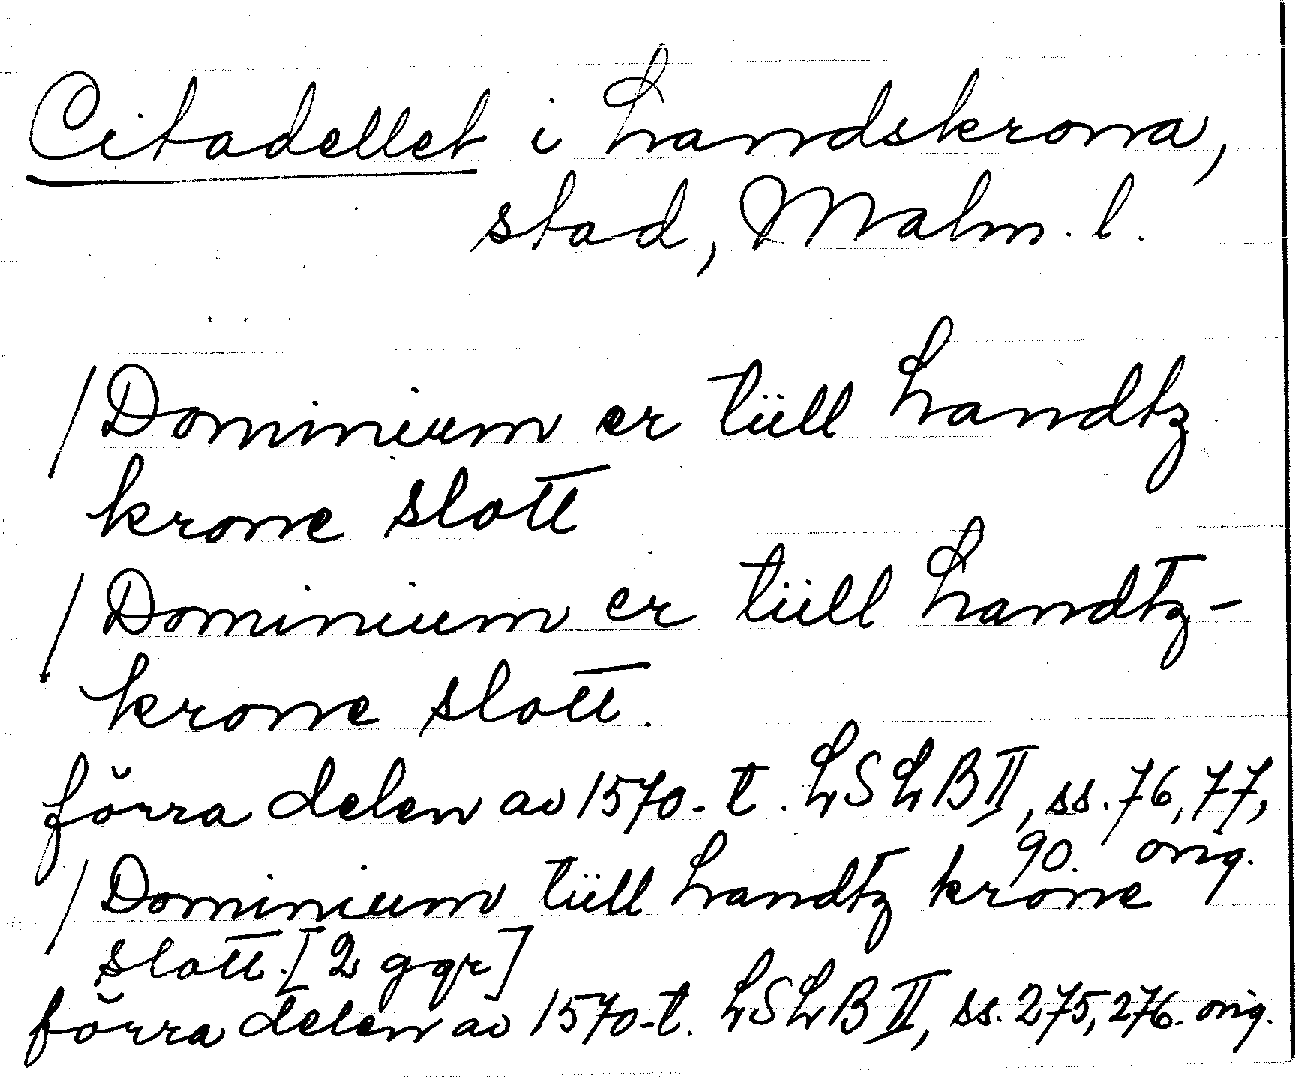 Citadellet i Landskrona,
stad, Malm. l.
/Dominium er tiill Landtz
krone slott
/Dominium er tiill Landtz-
krone slott.
förra delen av 1570-t. LSLB II, ss. 76, 77,
90. orig.
/Dominium tiill Landtz krone
slott. [2 ggr]
förra delen av 1570-t. LSLB II, ss. 275, 276. orig.